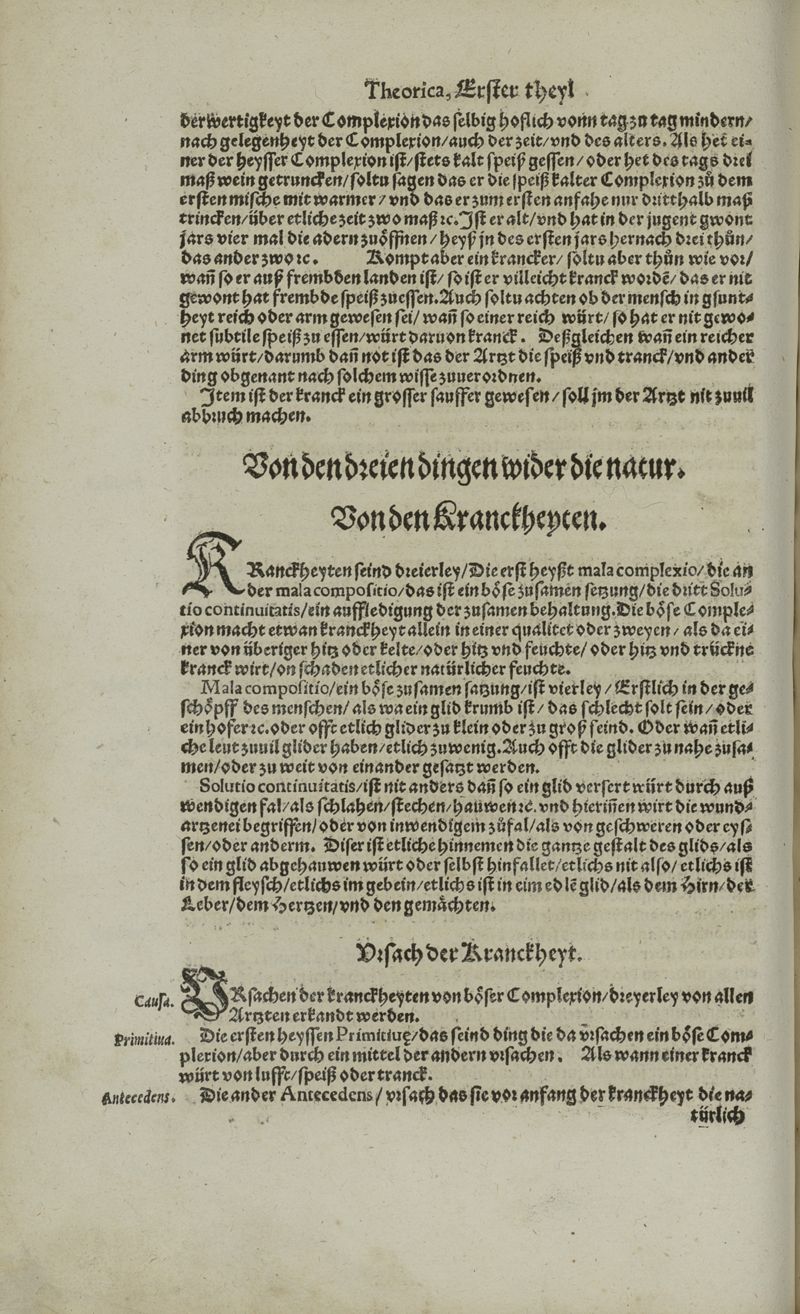 Theorica, Erster theyl
derwertigkeyt der Complexion das selbig hoflich vonn tag zu tag mindern/
nach gelegenheyt der Complexion/auch der zeit/vnd des alters. Als het ei⸗
ner der heysser Complexion ist/stets kalt speiß gessen/oder het des tags drei
maß wein getruncken/soltu sagen das er die speiß kalter Complexion zů dem
ersten mische mit warmer/vnd das er zum ersten anfahe nur dritthalb maß
trincken/über etliche zeit zwo maß ꝛc. Ist er alt/vnd hat in der jugent gwont
jars vier mal die adern zuöffnen/heyß jn des ersten jars hernach drei thůn/
das ander zwo ꝛc. Kompt aber ein krancker/soltu aber thůn wie vor/
wañ so er auß frembden landen ist/so ist er villeicht kranck wordē/das er nit
gewont hat frembde speiß zuessen. Auch soltu achten ob der mensch in gsunt⸗
heyt reich oder arm gewesen sei/wañ so einer reich würt/so hat er nit gewo⸗
net subtile speiß zu essen/würt daruon kranck. Deßgleichen wañ ein reicher
arm würt/darumb dañ not ist das der Artzt die speiß vnd tranck/vnd ander
ding obgenant nach solchem wisse zuuerordnen.
Item ist der kranck ein grosser sauffer gewesen/soll jm der Artzt nit zuuil
abbruch machen.
Von den dreien dingen wider die natur.
Von den Kranckheyten.
KRanckheyten seind dreierley/Die erst heyßt mala complexio/die an
der mala compositio/das ist ein böse zusamen setzung/die dritt Solu⸗
tio continuitatis/ein auffledigung der zusamen behaltung. Die böse Comple⸗
xion macht etwan kranckheyt allein in einer qualitet oder zweyen/als da ei⸗
ner von überiger hitz oder kelte/oder hitz vnd feuchte/oder hitz vnd trückne
kranck wirt/on schaden etlicher natürlicher feuchte.
Mala compositio/ein böse zusamen satzung/ist vierley/Erstlich in der ge⸗
schöpff des menschen/als wa ein glid krumb ist/das schlecht solt sein/oder
ein hofer ꝛc. oder offt etlich glider zu klein oder zu groß seind. Oder wañ etli⸗
che leut zuuil glider haben/etlich zuwenig. Auch offt die glider zu nahe zusa⸗
men/oder zu weit von einander gesatzt werden.
Solutio continuitatis/ist nit anders dañ so ein glid versert würt durch auß
wendigen fal/als schlahen/stechen/hauwen ꝛc. vnd hieriñen wirt die wund⸗
artzenei begriffen/oder von inwendigem zůfal/als von geschweren oder eys⸗
sen/oder anderm. Diser ist etliche hinnemen die gantze gestalt des glids/als
so ein glid abgehauwen würt oder selbst hinfallet/etlichs nit also/etlichs ist
in dem fleysch/etlichs im gebein/etlichs ist in eim edlē glid/als dem Hirn/der
Leber/dem Hertzen/vnd den gemächten.
Vrsach der Kranckheyt.
Causa.
VRsachen der kranckheyten von böser Complexion/dreyerley von allen
Artzten erkandt werden.
Primitiua.
Die ersten heyssen Primitiuę/das seind ding die da vrsachen ein böse Com⸗
plexion/aber durch ein mittel der andern vrsachen. Als wann einer kranck
würt von lufft/speiß oder tranck.
Antecedens.
Die ander Antecedens/vrsach das sie vor anfang der kranckheyt die na⸗
türlich